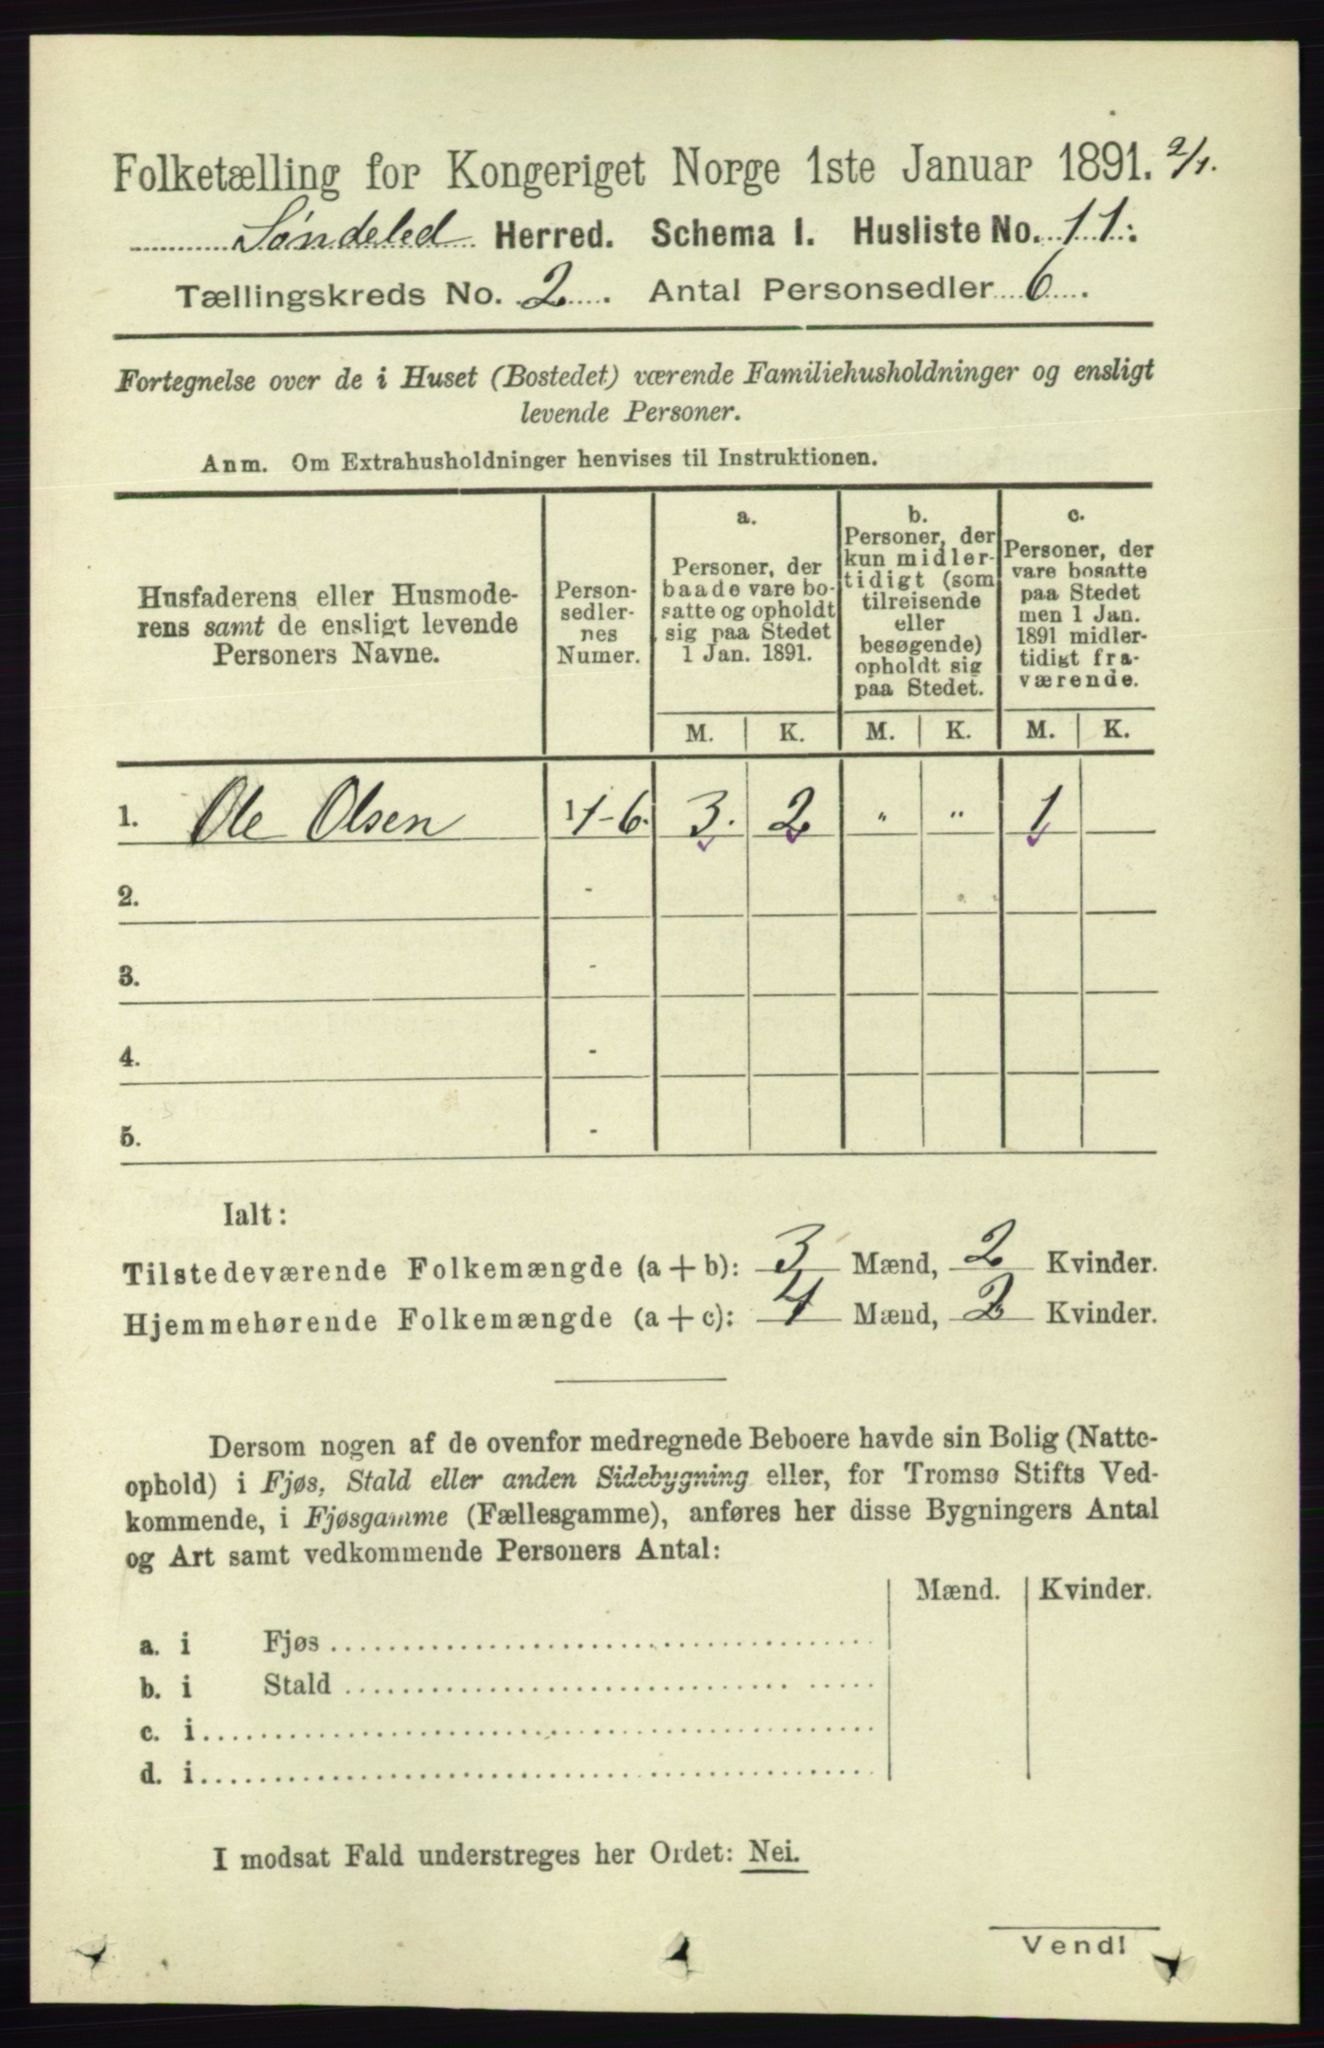 Folketælling for Kongeriget Norge 1ste Januar 1891. 2/1.
Søndeled Herred. Schema I. Husliste No. 11.
Tællingskreds No. 2. Antal Personsedler 6.
Fortegnelse over de i Huset (Bostedet) værende Familiehusholdninger og ensligt
levende Personer.
Anm. Om Extrahusholdninger henvises til Instruktionen.
Husfaderens eller Husmode-
rens samt de ensligt levende
Personers Navne.
Person-
sedler-
nes
Numer.
a.
Personer, der
baade vare bo-
satte og opholdt
sig paa Stedet
1 Jan. 1891.
b.
Personer, der
kun midler-
tidigt (som
tilreisende
eller
besøgende)
opholdt sig
paa Stedet.
c.
Personer, der
vare bosatte
paa Stedet
men 1 Jan.
1891 midler-
tidigt fra-
værende.
M. K. M. K. M. K.
1. Ole Olsen 1-6. 3. 2 " " 1
2. -
3. -
4. -
5. -
Ialt:
Tilstedeværende Folkemængde (a + b): 3 Mænd, 2 Kvinder.
Hjemmehørende Folkemængde (a + c): 4 Mænd, 2 Kvinder.
Dersom nogen af de ovenfor medregnede Beboere havde sin Bolig (Natte-
ophold) i Fjøs, Stald eller anden Sidebygning eller, for Tromsø Stifts Ved-
kommende, i Fjøsgamme (Fællesgamme), anføres her disse Bygningers Antal
og Art samt vedkommende Personers Antal:
Mænd. Kvinder.
a. i Fjøs
b. i Stald
c. i
d. i
I modsat Fald understreges her Ordet: Nei.
Vend!